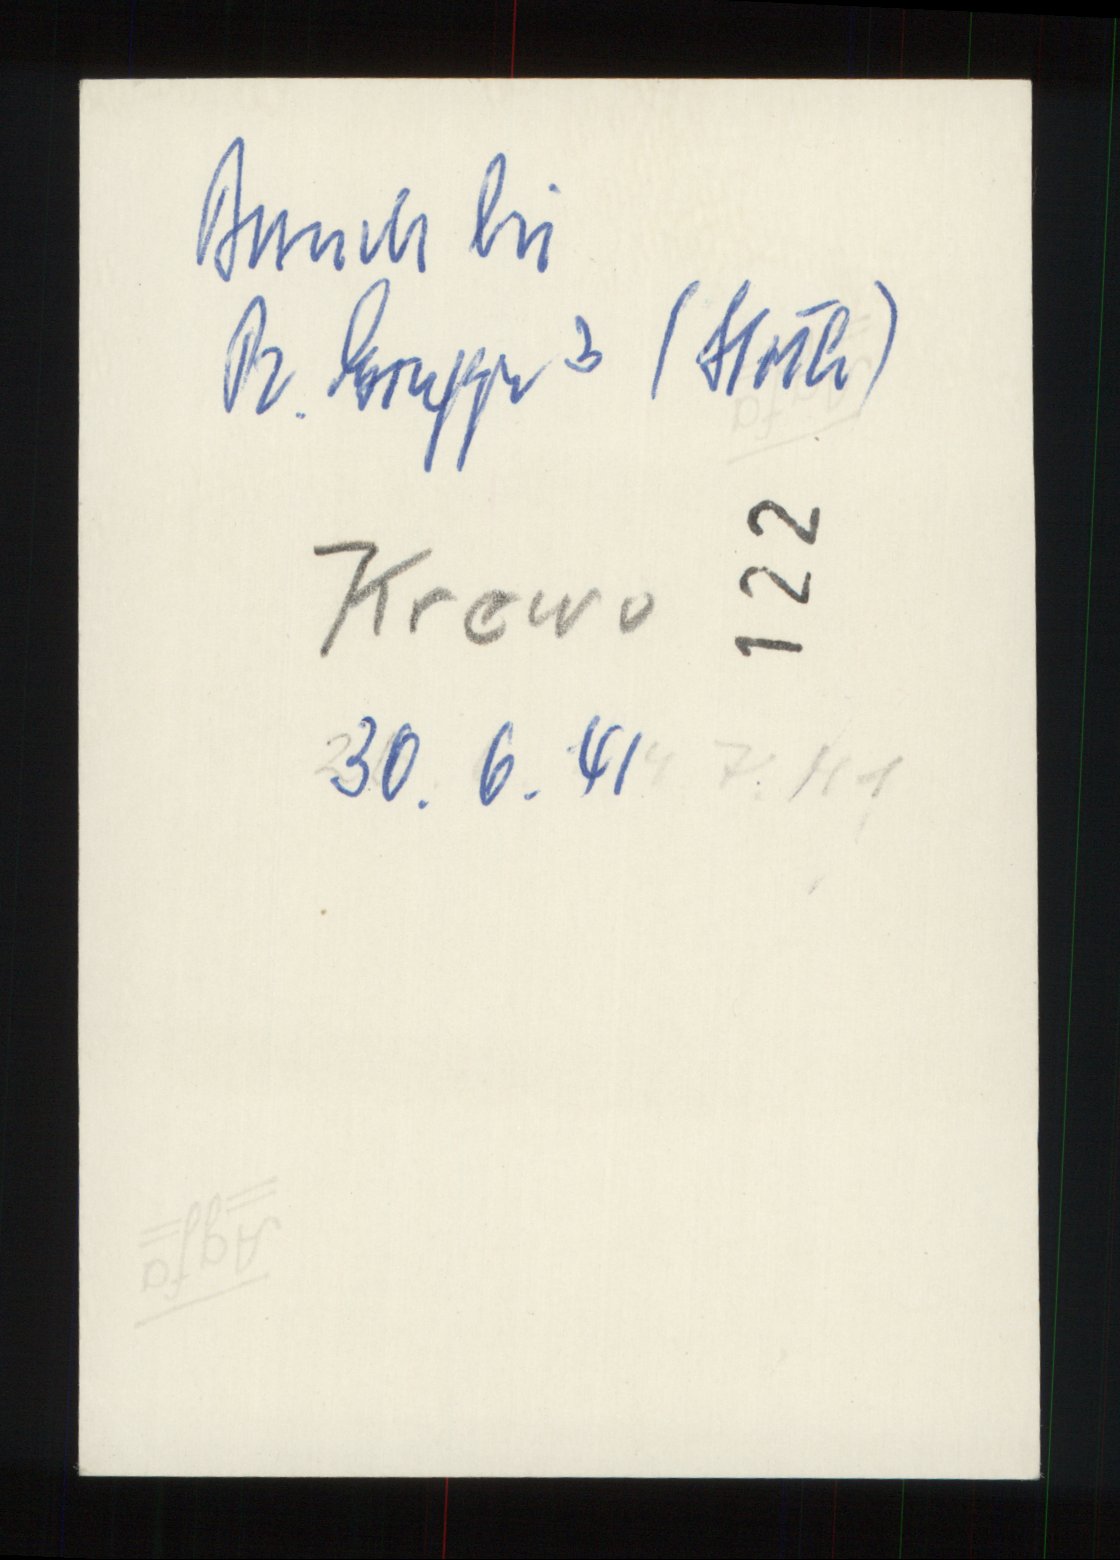 Besuch bei
Pz. Gruppe 3 (Hoth)
Krewo
122
30. 6. 41
7. 41
Agfa
Agfa